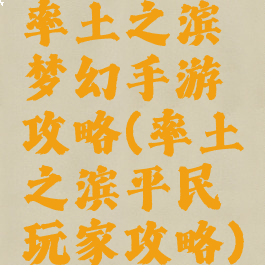 率土之滨
梦幻手游
攻略(率土
之滨平民
玩家攻略)